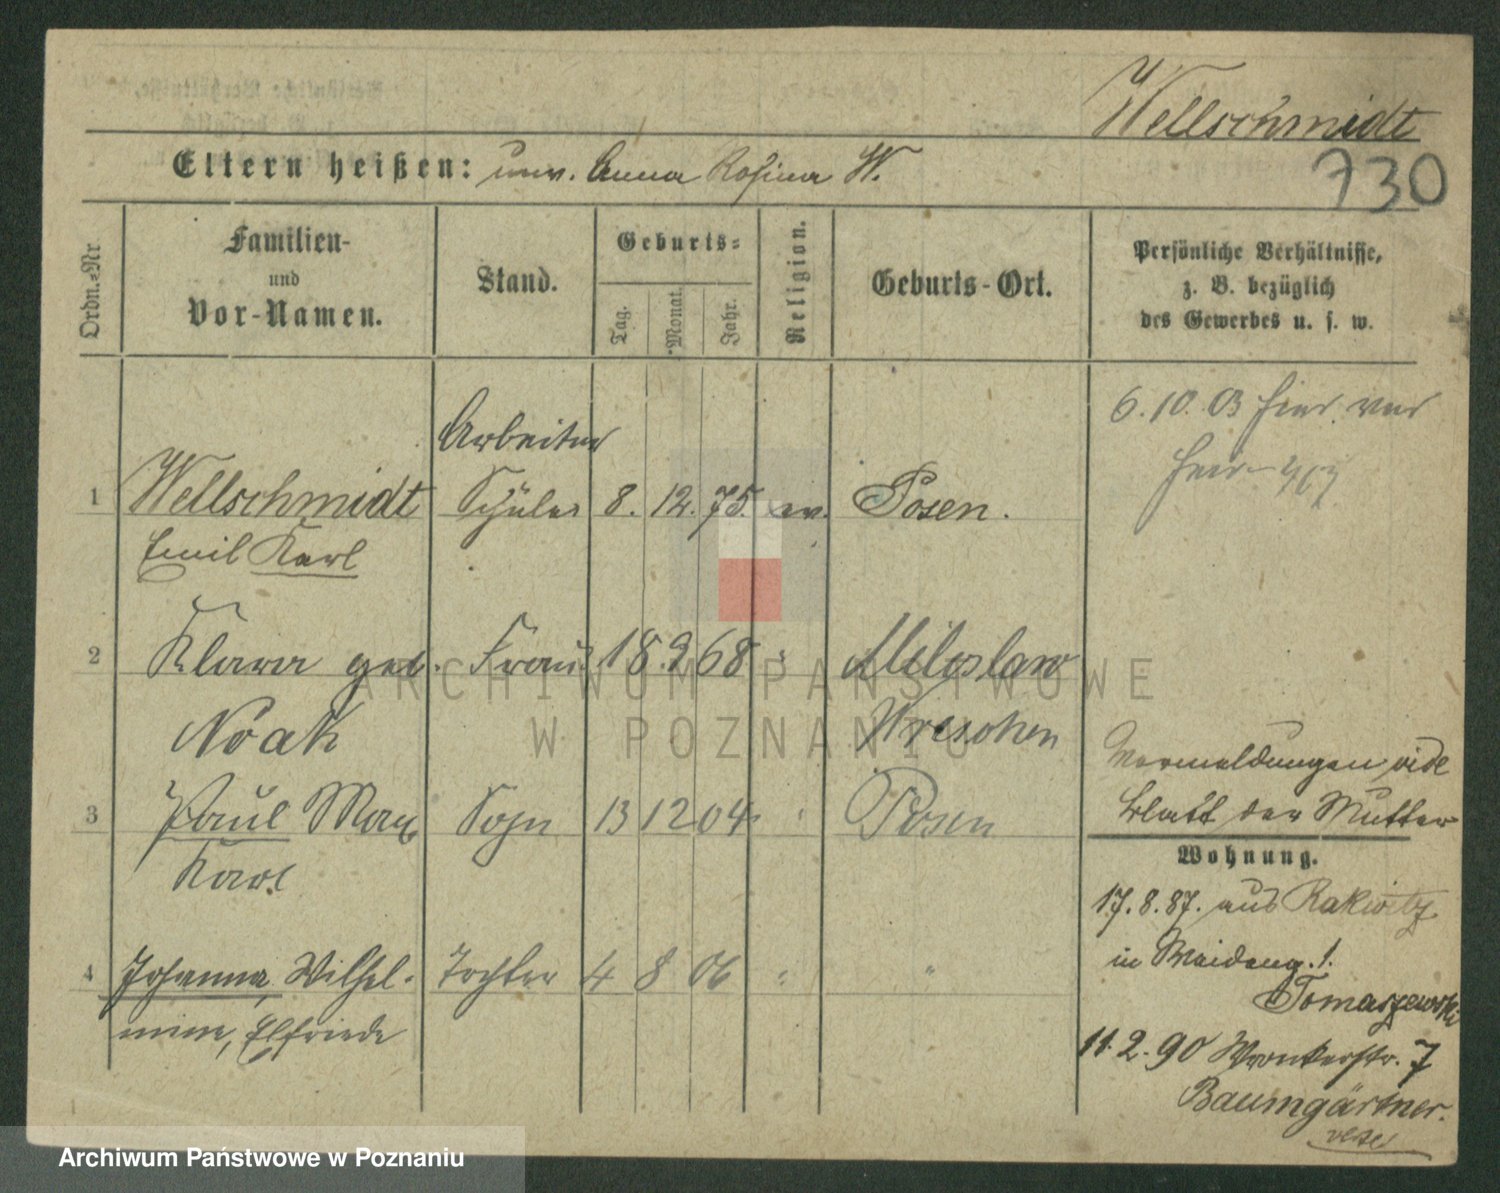 Wellschmidt
730
Eltern heißen: unv. Anna Rosina W.
Ordn.-Nr.
Familien-
und
Vor-Namen.
Stand.
Geburts-
Tag.
Monat.
Jahr.
Religion.
Geburts-Ort.
Persönliche Verhältnisse,
z. B. bezüglich
des Gewerbes u. s. w.
6. 10. 03 hier
Arbeiter
1 Wellschmidt Schüler 8. 12. 75. ev. Posen.
Emil Karl
2 Klara geb. Frau 18. 9 68 " Miloslaw
Noak Wreschen
Vermeldungen vide
Blatt der Mutter
3 Paul Max Sohn 13 12 04 " Posen
Karl
Wohnung.
17. 8. 87. aus Rakwitz
in
4 Johanna, Wilhel- Tochter 4 8 06 " "
mine, Elfriede
Tomaszewski
11. 2. 90 Wronkerstr. 7
Baumgärtner.
ARCHIWUM PAŃSTWOWE
W POZNANIU
Archiwum Państwowe w Poznaniu